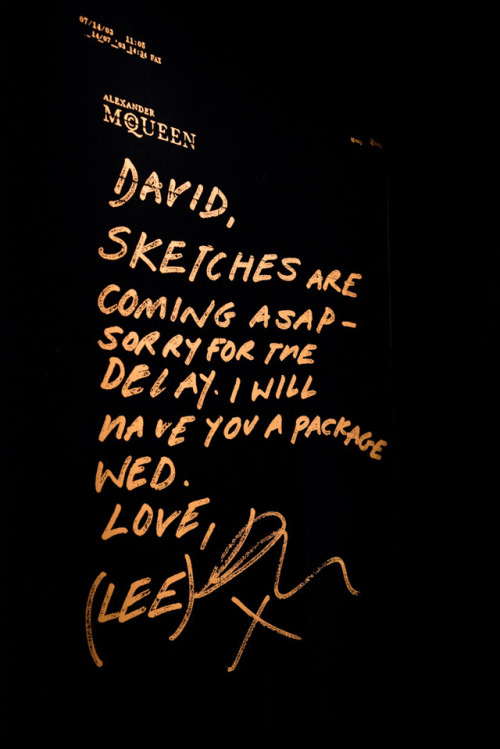 07/14/03 11:08
14/07 '03 14:24 FAX
ALEXANDER
MCQUEEN
DAVID,
SKETCHES ARE
COMING ASAP-
SORRY FOR THE
DELAY. I WILL
HAVE YOU A PACKAGE
WED.
LOVE,
(LEE)
X